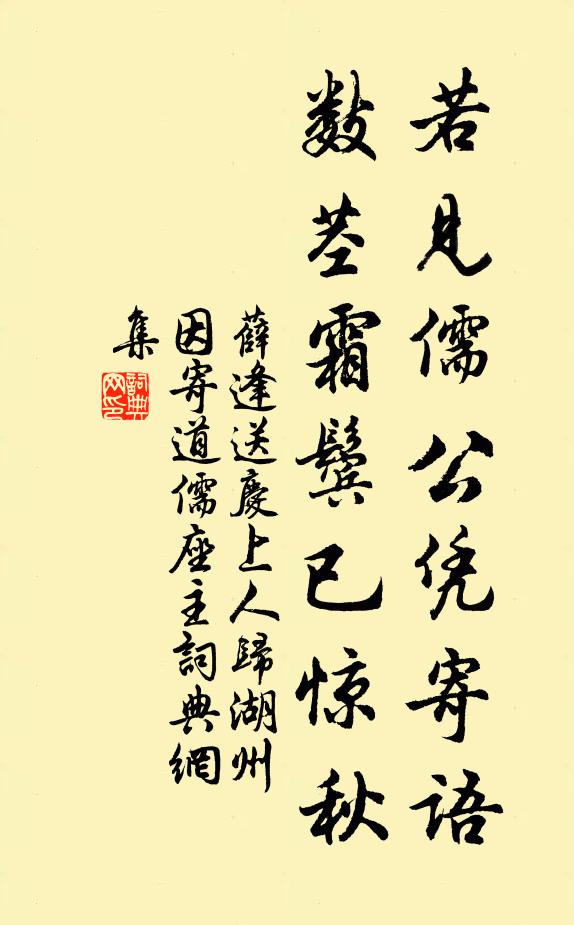 若见儒公凭寄语
数茎霜鬓已惊秋
薛逢送慶上人歸湖州
因寄道儒座主詞典網
集
詞典
网印